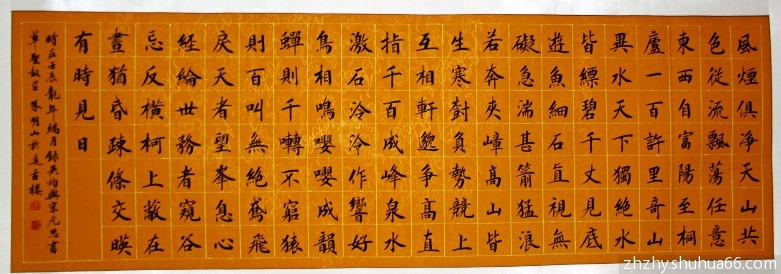 風煙俱淨天山共
色從流飄蕩任意
東西自富陽至桐
廬一百許里奇山
異水天下獨絕水
皆縹碧千丈見底
遊魚細石直視無
礙急湍甚箭猛浪
若奔夾嶂高山皆
生寒樹負勢競上
互相軒邈爭高直
指千百成峰泉水
激石泠泠作響好
鳥相鳴嚶嚶成韻
蟬則千囀不窮猿
則百叫無絕鳶飛
戾天者望峯息心
經綸世務者窺谷
忘反橫柯上蔽在
晝猶昏疎條交暎
有時見日
時在壬辰龍年端月錄吳均與宋元思書
草聖故里明山於古樓
zhzhy.shuhua66.com